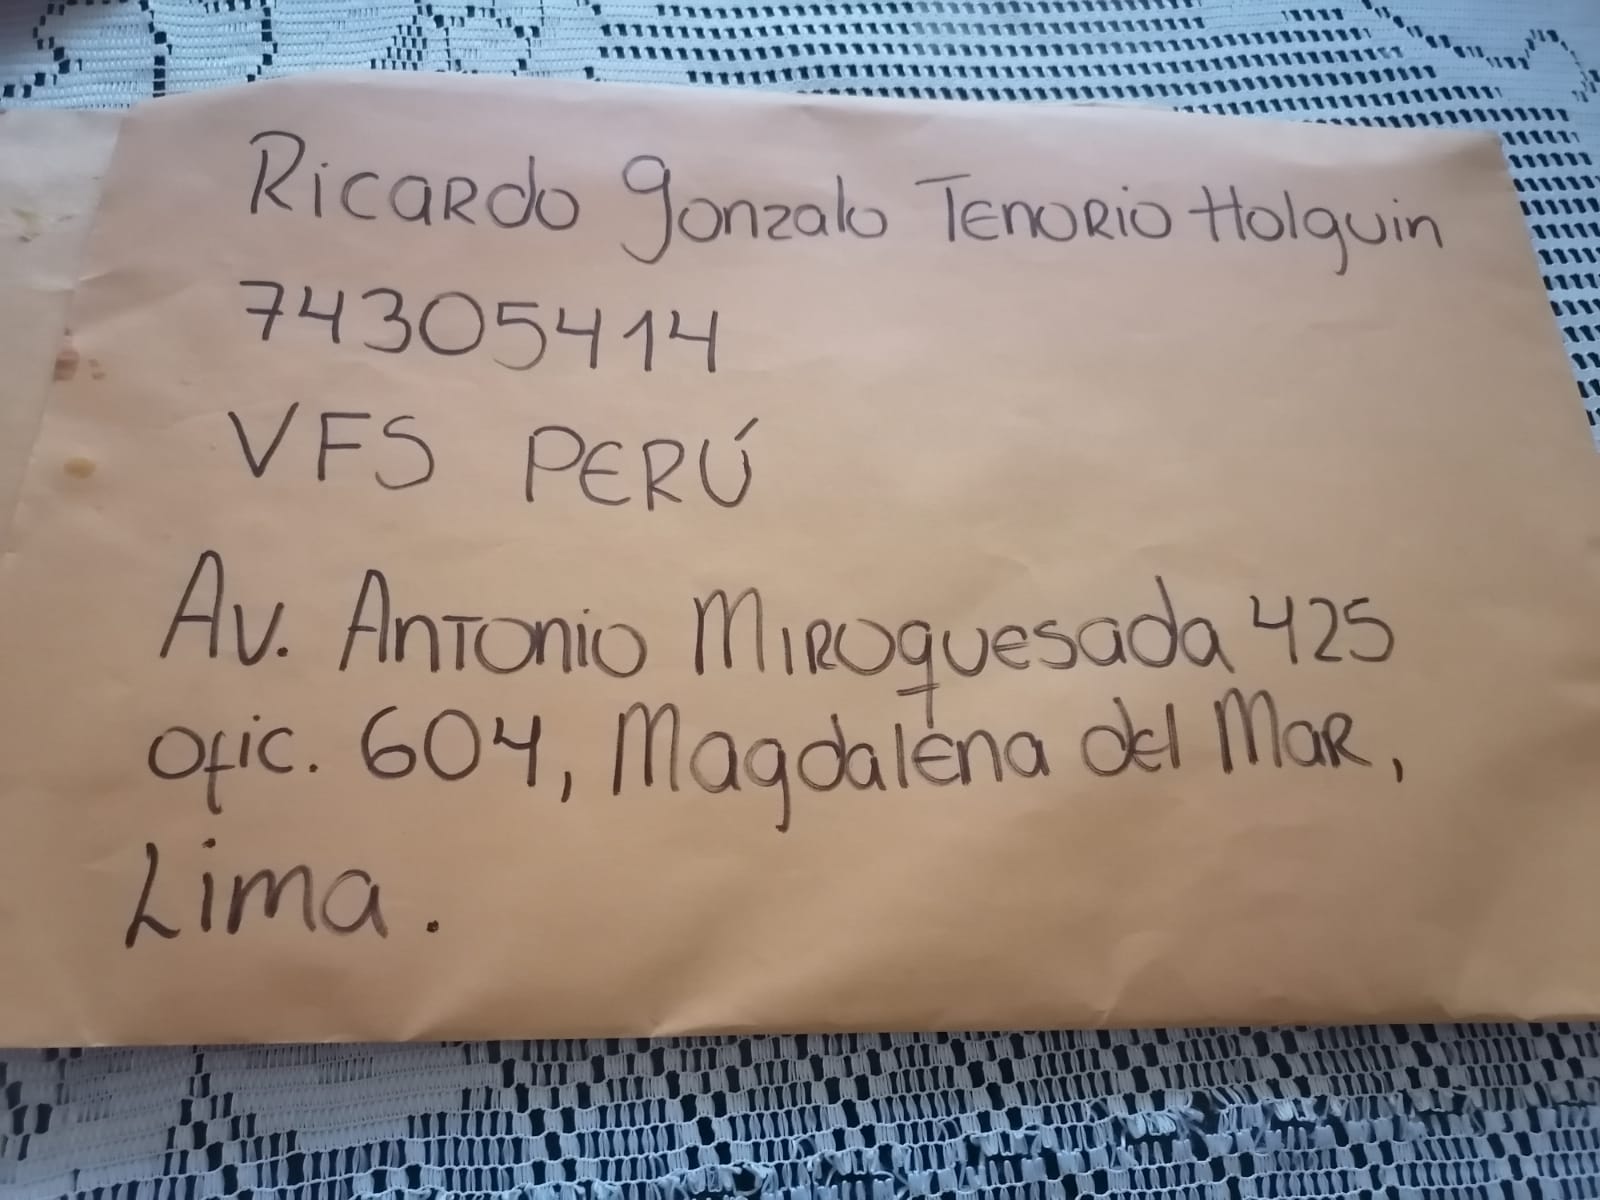 Ricardo Gonzalo Tenorio Holguin
74305414
VFS PERÚ
Av. Antonio Miroquesada 425
Ofic. 604, Magdalena del Mar,
Lima.